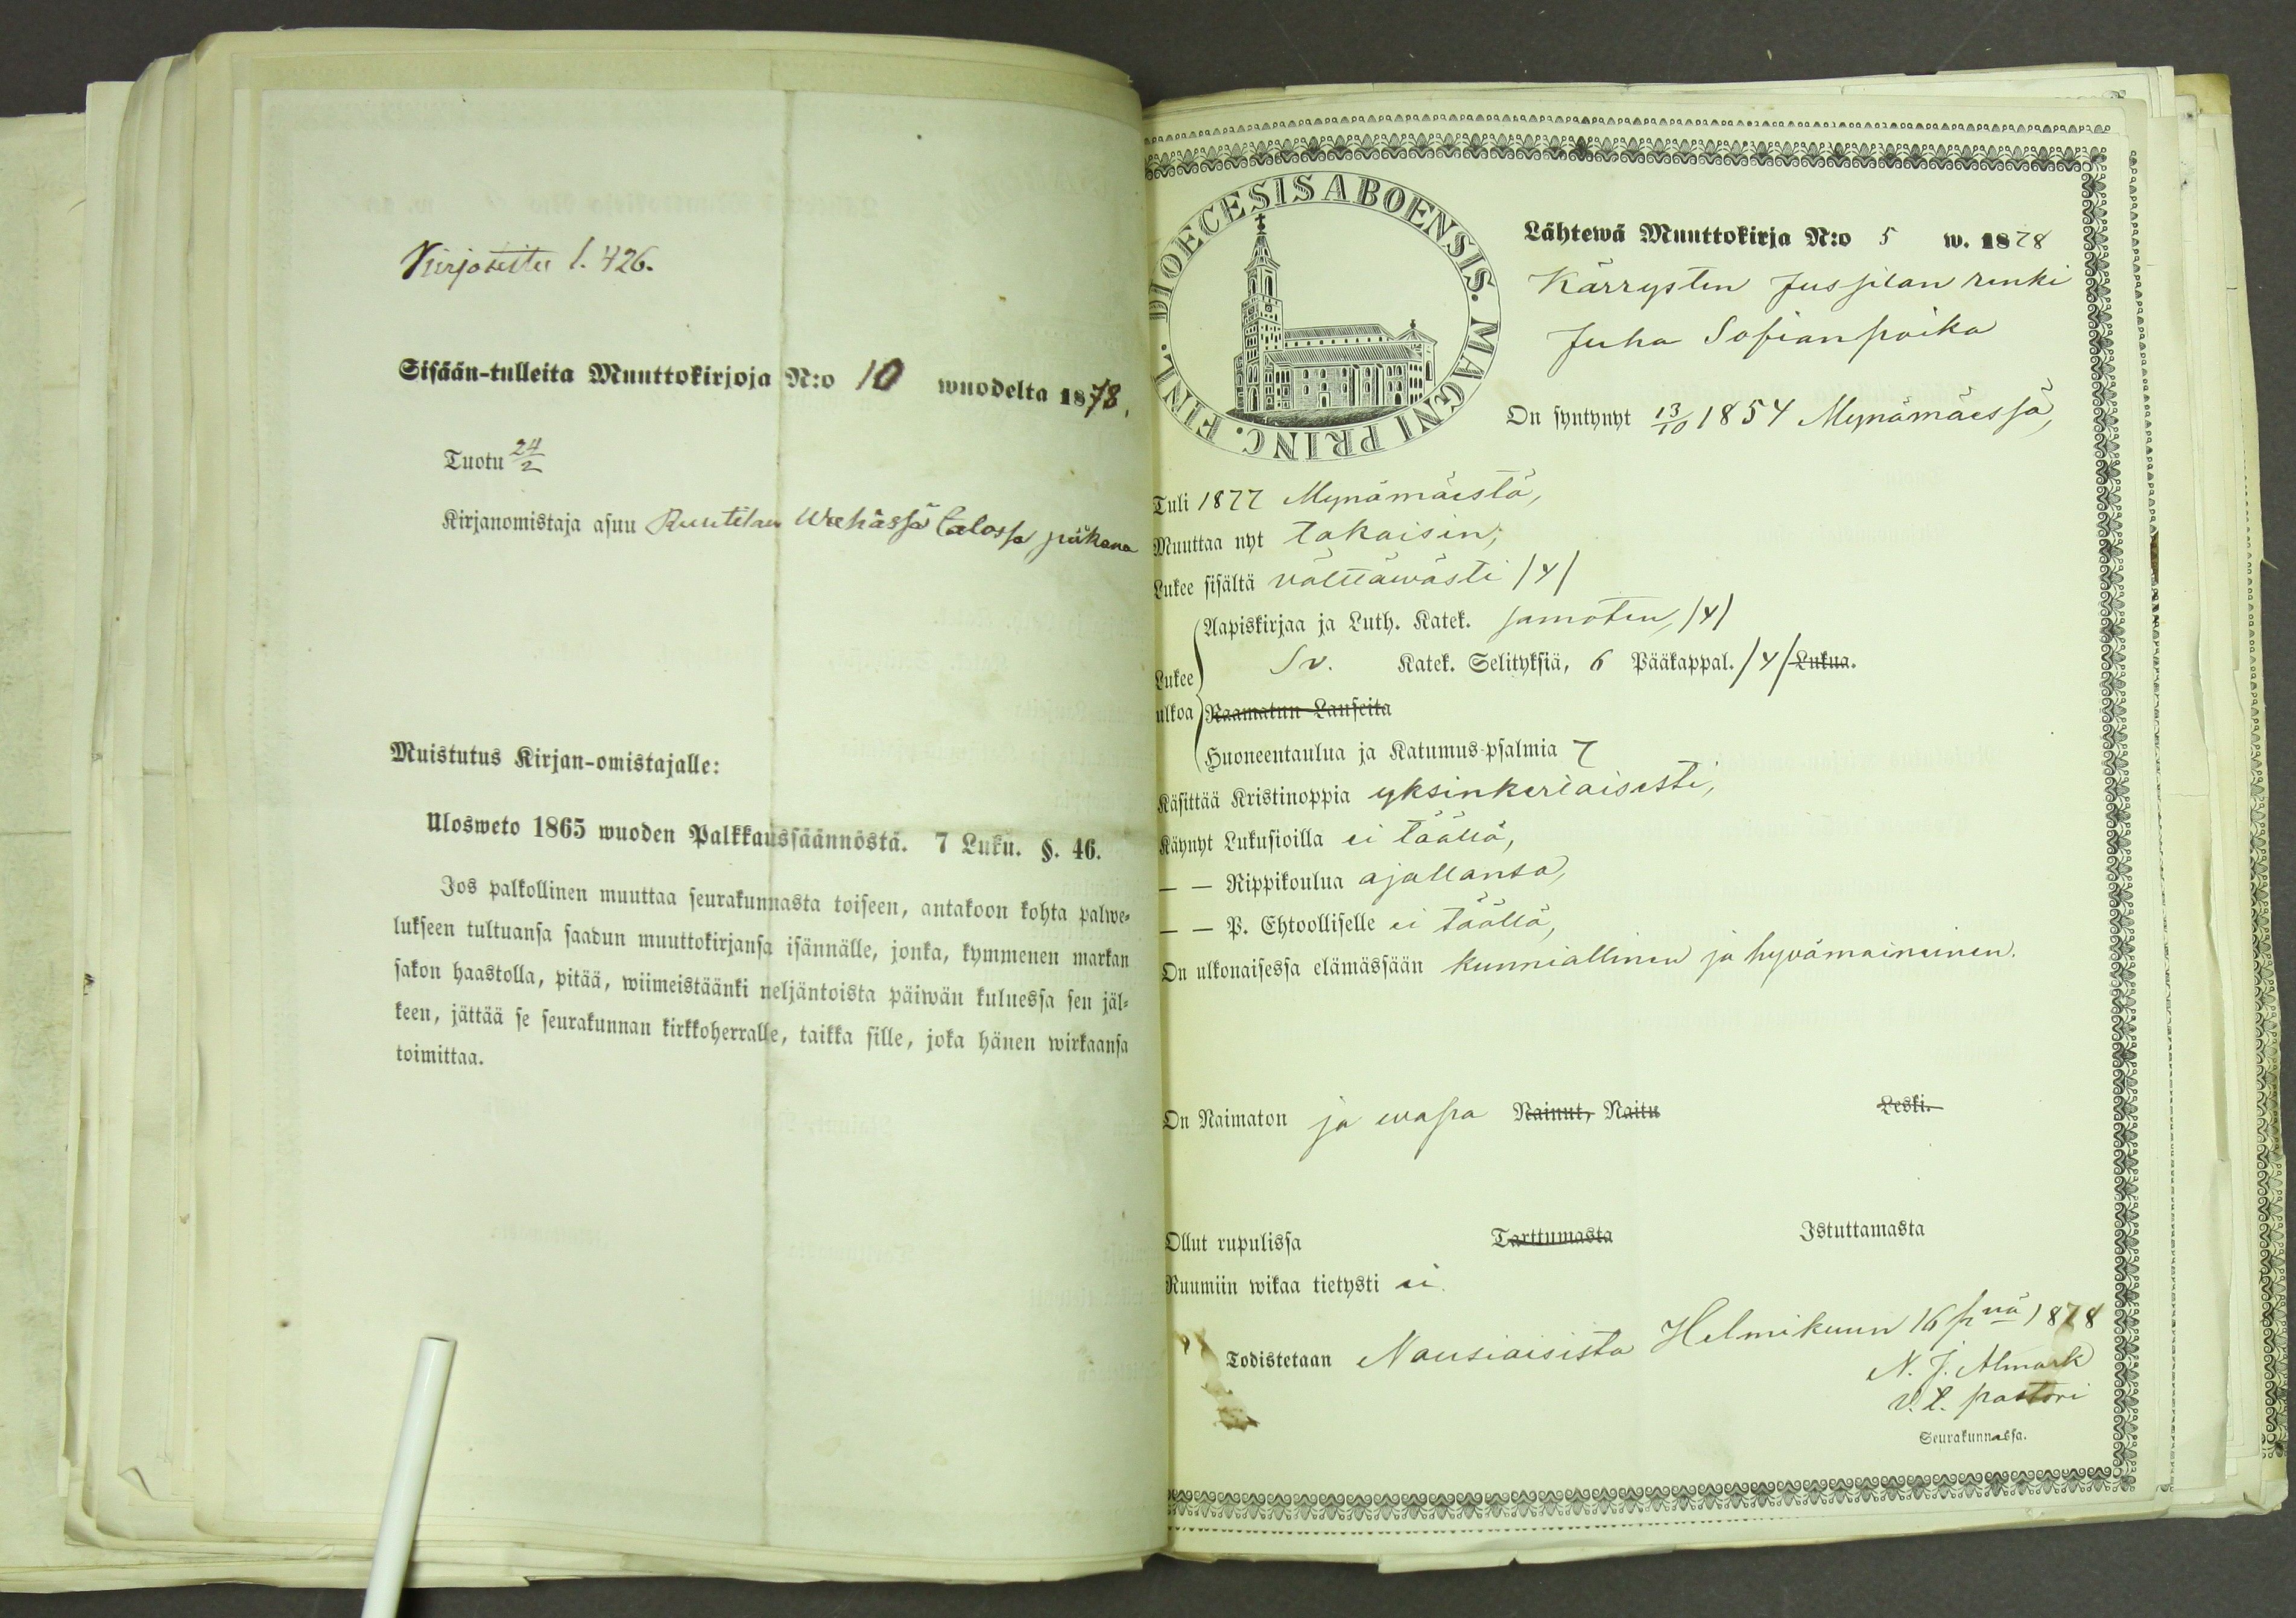 Kirjoitettu l. 426.
Sisään-tulleita Muuttokirjoja N:o 10 wuodelta 1878.
Tuotu 24/2
Kirjanomistaja asuu Ruutilan talossa piikana
Muistutus Kirjan-omistajalle:
Ulosweto 1865 wuoden Palkkaussäännöstä. 7 Luku. §. 46.
Jos palkollinen muuttaa seurakunnasta toiseen, antakoon kohta palwe-
lukseen tultuansa saadun muuttokirjansa isännälle, jonka, kymmenen markan
sakon haastolla, pitää, wiimeistäänki neljäntoista päiwän kuluessa sen jäl-
keen, jättää se seurakunnan kirkkoherralle, taikka sille, joka hänen wirkaansa
toimittaa.
DIOECESIS ABOENSIS. MAGNI PRINC. FINL.
Lähtewä Muuttokirja N:o 5 w. 1878
Kärrysten Jussilan renki
Juha Sofianpoika
On syntynyt 13/10 1854 Mynämäessä,
Tuli 1877 Mynämäestä,
Muuttaa nyt takaisin;
Lukee sisältä välttäwästi /4/
Aapiskirjaa ja Luth. Katek. samoten, /4/
Lukee Sv. Katek. Selityksiä, 6 Pääkappal. /4/ Lukua.
ulkoa Raamatun Lauseita
Huoneentaulua ja Katumus-psalmia 7
Käsittää Kristinoppia yksinkertaisesti,
Käynyt Lukusioilla ei täällä,
— — Rippikoulua ajallansa,
— — P. Ehtoolliselle ei täällä,
On ulkonaisessa elämässään kunniallinen ja hyvämaineinen.
On Naimaton ja wapa Nainut, Naitu Leski.
Ollut rupulissa Tarttumasta Istuttamasta
Ruumiin wikaa tietysti ei.
Todistetaan Nousiaisista Helmikuun 16 pnä 1878
N. J. Almark
v.t. pastori
Seurakunnassa.